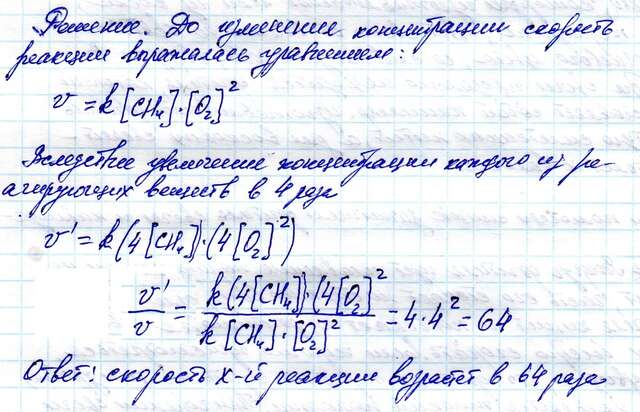 Решение. До изменения концентрации скорость
реакции выражалась уравнением:
v = k[CH₄]·[O₂]²
Вследствие увеличения концентрации каждого из ре-
агирующих веществ в 4 раза
v' = k(4[CH₄])·(4[O₂]²)
v'/v = k(4[CH₄])·(4[O₂]²/k[CH₄]·[O₂]² = 4·4² = 64
Ответ: скорость х-й реакции возрастет в 64 раза